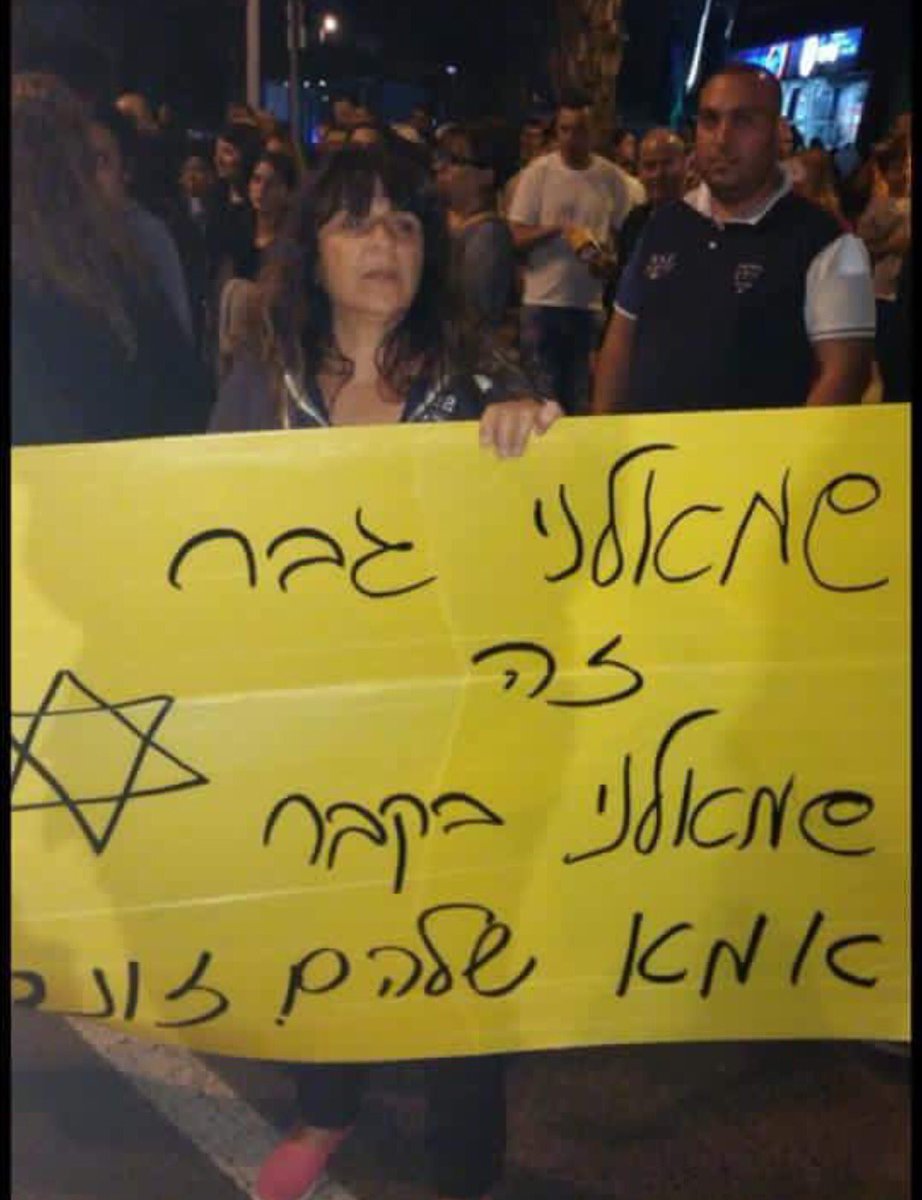 שמאלני גבר
זה
שמאלני בקבר
אמא שלהם זונה